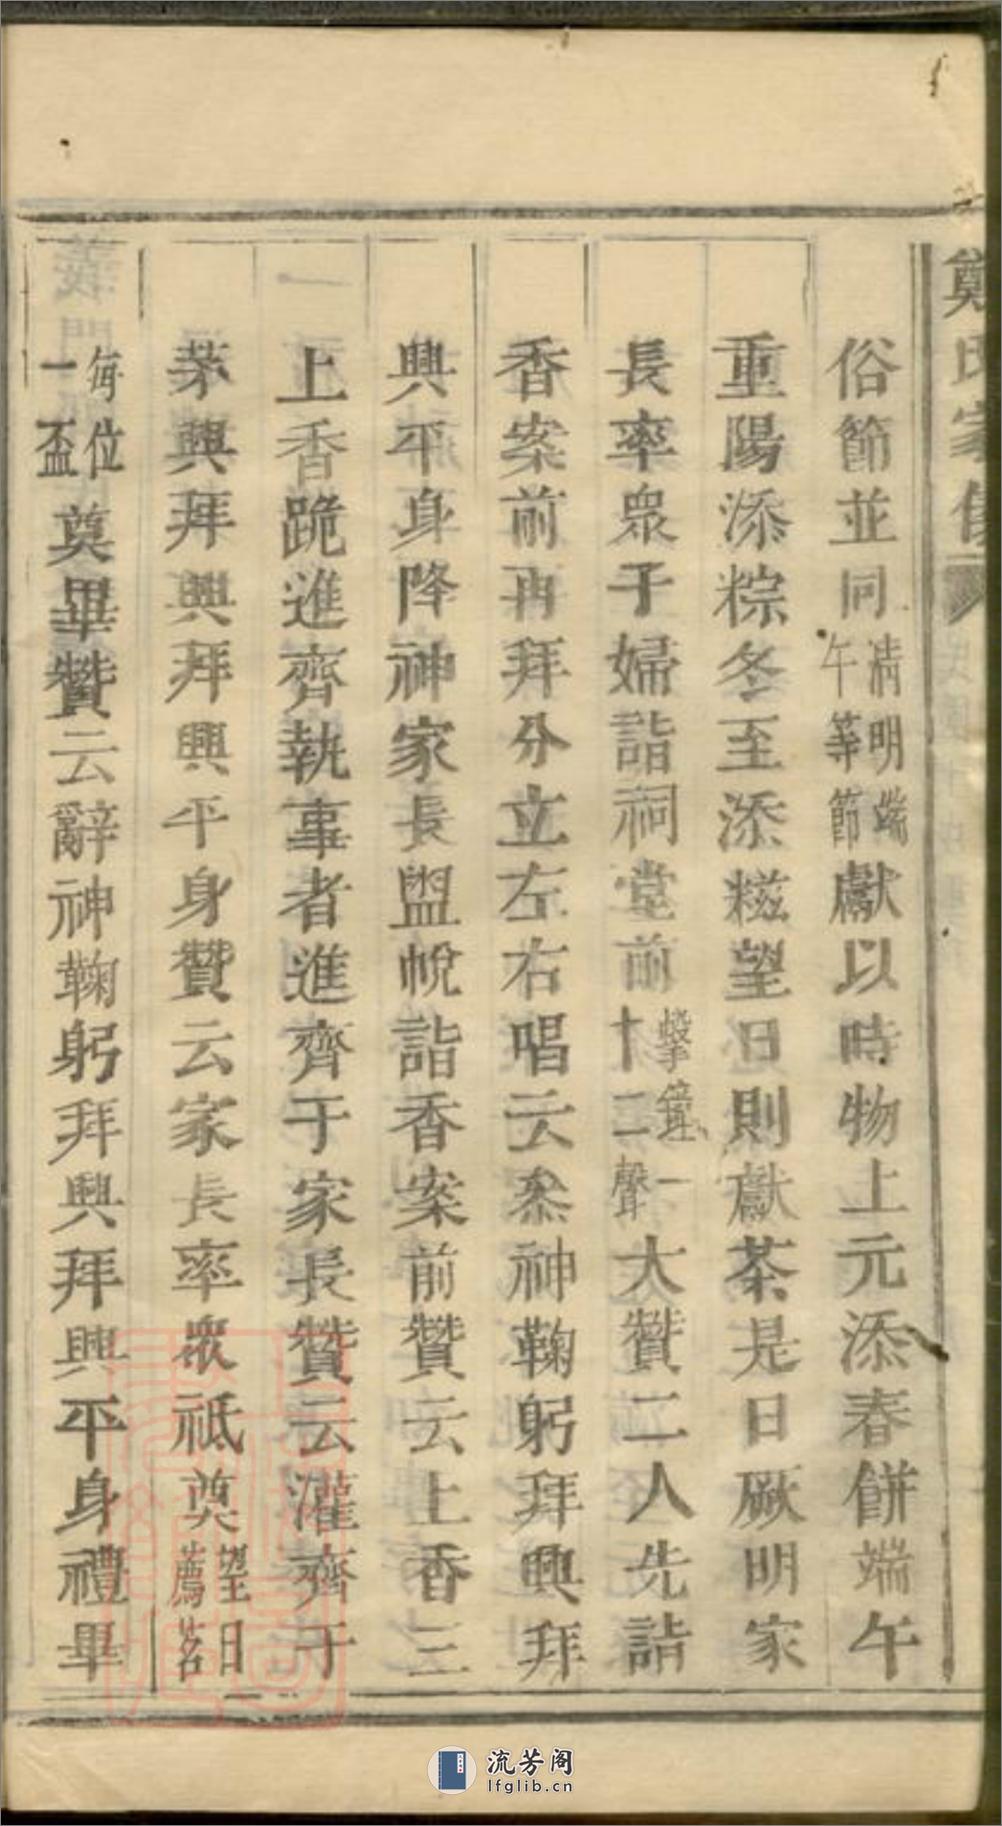 鄭氏家儀
俗節並同清明端午等節獻以時物上元添春餠端午
重陽添粽冬至添糍望日則獻茶是日厥明家
長率衆子婦詣祠堂前擊鐘一十二聲大贊二人先詣
香案前再拜分立左右唱云叅神鞠躬拜興拜
興平身降神家長盥帨詣香案前贊云上香三
上香跪進齊執事者進齊于家長贊云灌齊于
茅興拜興拜興平身贊云家長率衆祗奠望日薦茗
每位一盃奠畢贊云辭神鞠躬拜興拜興平身禮畢
流芳阁
lfglib.cn